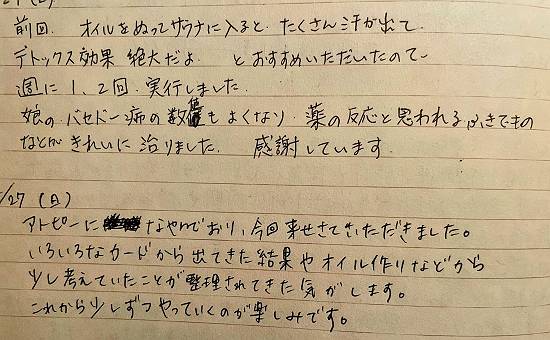 前回. オイルをぬってサウナに入ると たくさん汗が出て.
デトックス効果 絶大だよ. とおすすめいただいたので
週に1、2回. 実行しました.
娘の バセドー病の数値もよくなり. 薬の反応と思われる ふきでもの
などが きれいに 治りました. 感謝しています.
/27 (日)
アトピーに なやんでおり、今回 来させていただきました。
いろいろなカードから 出てきた 結果や オイル作りなどから
少し考えていたことが 整理されてきた 気がします。
これから少しずつ やっていくのが 楽しみです。